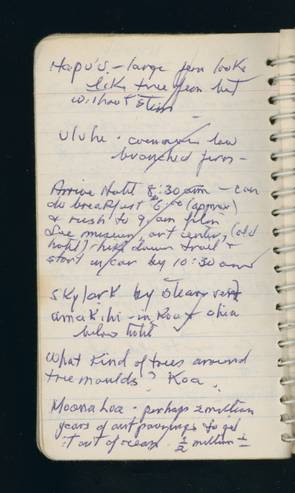 Hapu'u - large fern looks
like tree fern but
without stem
Uluhe - common low
branched fern -
Arrive Hotel 8:30 am - can
do breakfast
& rush to 9 am film
See museum, art center, (old
hotel) - hike down trail &
start in car by 10:30 am
Skylark by steam vent
amakihi - in Koa & ohia
below hotel
What kind of trees around
tree moulds? Koa
Moana Loa - perhaps 2 million
years of outpourings to get
it out of ocean. ½ million ±